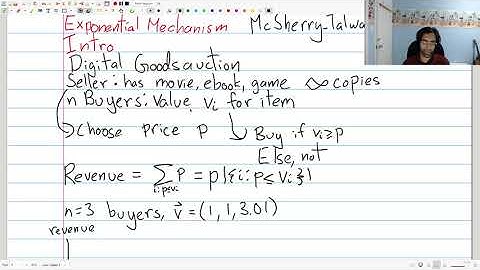 Exponential Mechanism McSherry-Talwa
Intro
Digital Goods auction
Seller: has movie, ebook, game ∞ copies
n Buyers: Value v_i for item
→ Choose Price p → Buy if v_i ≥ p
Else, not
Revenue = Σ_{i: p≤v_i} p = p|{i: p ≤ v_i}|
n=3 buyers, v⃗ = (1, 1, 3.01)
revenue